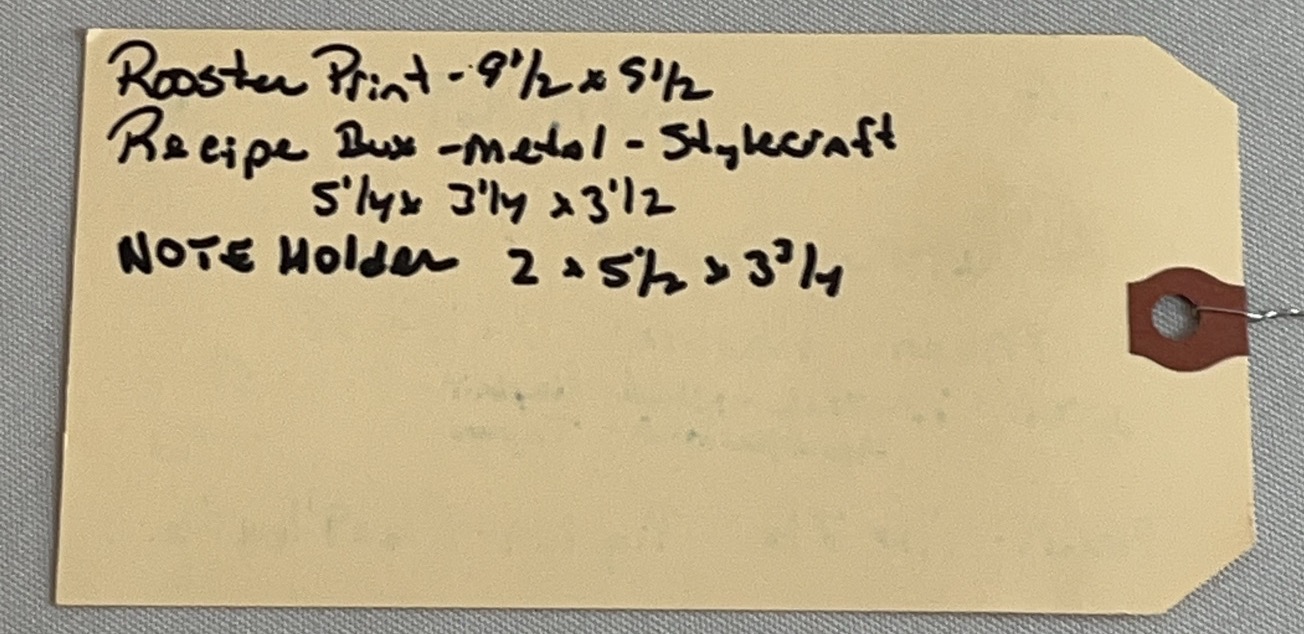 Rooster Print - 9 1/2 x 5 1/2
Recipe Box - metal - Stylecraft
5 1/4 x 3 1/4 x 3 1/2
NOTE Holder 2 x 5 1/2 x 3 3/4